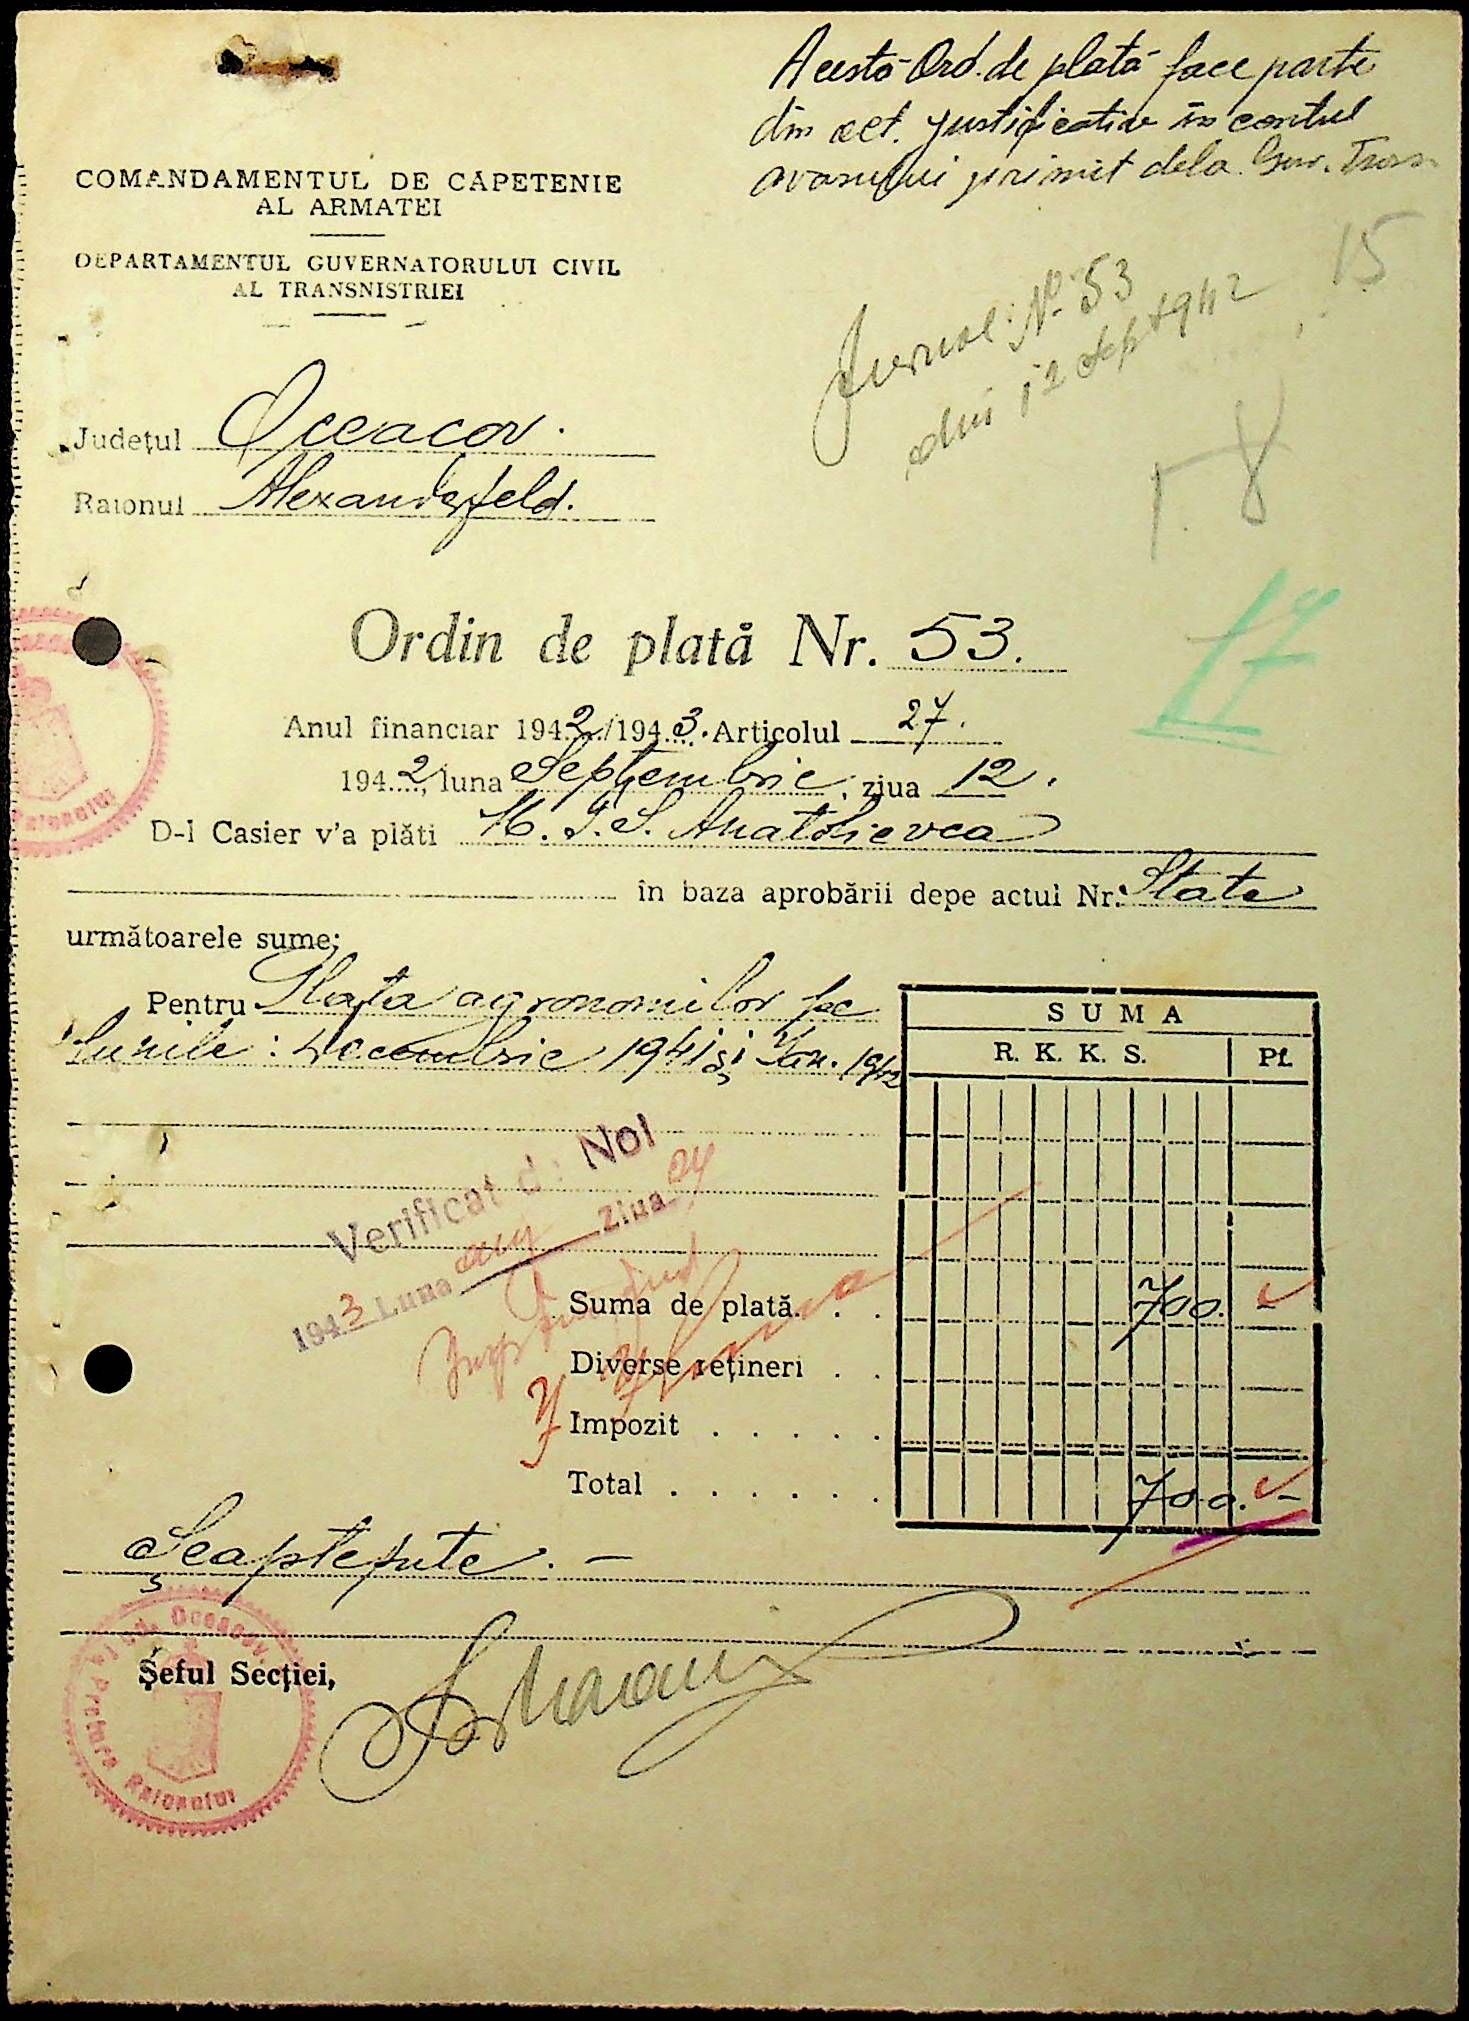 Acestă Ord. de plată face parte
din act. justificative în contul
avansului primit dela Guv. Trans.
COMANDAMENTUL DE CAPETENIE
AL ARMATEI
DEPARTAMENTUL GUVERNATORULUI CIVIL
AL TRANSNISTRIEI
15
Jurnal Nº 53
din 12 Sept 1942
Județul Oceacov.
Raionul Alexanderfeld.
18
17
Ordin de plată Nr. 53.
Anul financiar 1942/1943. Articolul 27.
1942, luna Septembrie, ziua 12.
D-l Casier v'a plăti M. T. S. Anatolievca
în baza aprobării depe actul Nr. State
următoarele sume:
Pentru Plata agronomilor pe
lunile: Decembrie 1941 și Ian. 1942
SUMA
R. K. K. S. Pf.
Verificat de Noi
1943 Luna aug Ziua 24
Suma de plată. . . 700. -
Diverse rețineri . .
Impozit . . . . .
Total . . . . . . 700. -
Șeaptepute. -
Șeful Secției,
Pretura Raionului
Jud. Oceacov
Raionului